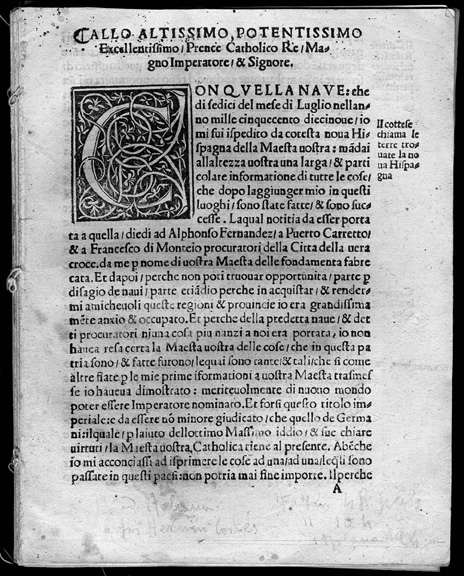 CALLO ALTISSIMO, POTENTISSIMO
Excellentissimo/ Prence Catholico Re/ Ma-
gno Imperatore/ & Signore.
CONQVELLA NAVE: che
di sedici del mese di Luglio nellan-
no mille cinquecento diecinoue/ io
mi fui ispedito da cotesta noua Hi-
spagna della Maesta uostra: mādai
allaltezza uostra una larga/ & parti
colare informatione di tutte le cose/
che dopo laggiunger mio in questi
luoghi/ sono state fatte/ & sono suc-
cesse. Laqual notitia da esser porta
ta a quella/ diedi ad Alphonso Fernandez/ a Puerto Carretto/
& a Francesco di Monteio procuratori della Citta della uera
croce. da me p nome di uostra Maesta delle fondamenta fabre
cata. Et dapoi/ perche non poti truouar opportunita/ parte p
disagio de naui/ parte etiādio perche in acquistar/ & render-
mi amicheuoli queste regioni & prouincie io era grandissima
mēte anxio & occupato. Et perche della predetta naue/ & det
ti procuratori niuna cosa piu nanzi a noi era portata, io non
hauea resa certa la Maesta uostra delle cose/ che in questa pa
tria sono/ & fatte furono/ lequai sono tante/ & tali/ che si come
altre fiate p le mie prime iformationi a uostra Maesta trasmes
se io haueua dimostrato: meriteuolmente di nuouo mondo
poter essere Imperatore nominato. Et forsi questo titolo im-
periale: e da essere nō minore giudicato/ che quello de Germa
ni: ilquale/ p laiuto dellottimo Massimo iddio/ & sue chiare
uirtuti/ la Maesta uostra, Catholica tiene al presente. Abēche
io mi acconciassi ad isprimere le cose ad una/ ad una/ leq̄li sono
passate in questi paesi: non potria mai fine imporre. Il perche
A
Il cortese
chiama le
terre tro-
uate la no
ua Hispa-
gna